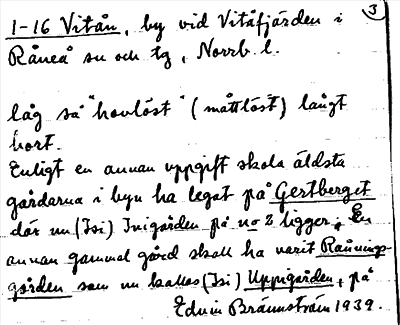 3
1-16 Vitån, by vid Vitåfjärden i
Råneå sn och tg, Norrb. l.
låg så "hovlöst" (måttlöst) långt
bort.
Enligt en annan uppgift skola äldsta
gårdarna i byn ha legat på Gertberget
där nu (Isi) Inigården på no 2 ligger. En
annan gammal gård skall ha varit Rånings-
gården som nu kallas (Isi) Uppigården, på
Edvin Brännström 1939.